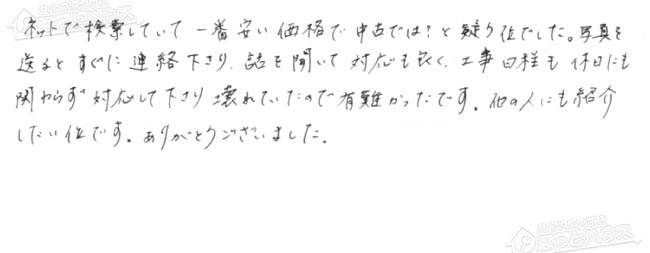 ネットで検索していて 一番安い価格で中古では?と疑う位でした。写真を
送るとすぐに連絡下さり、話を聞いて対応も良く、工事日程も休日にも
関わらず対応して下さり壊れていたので有難かったです。他の人にも紹介
したい位です。ありがとうございました。